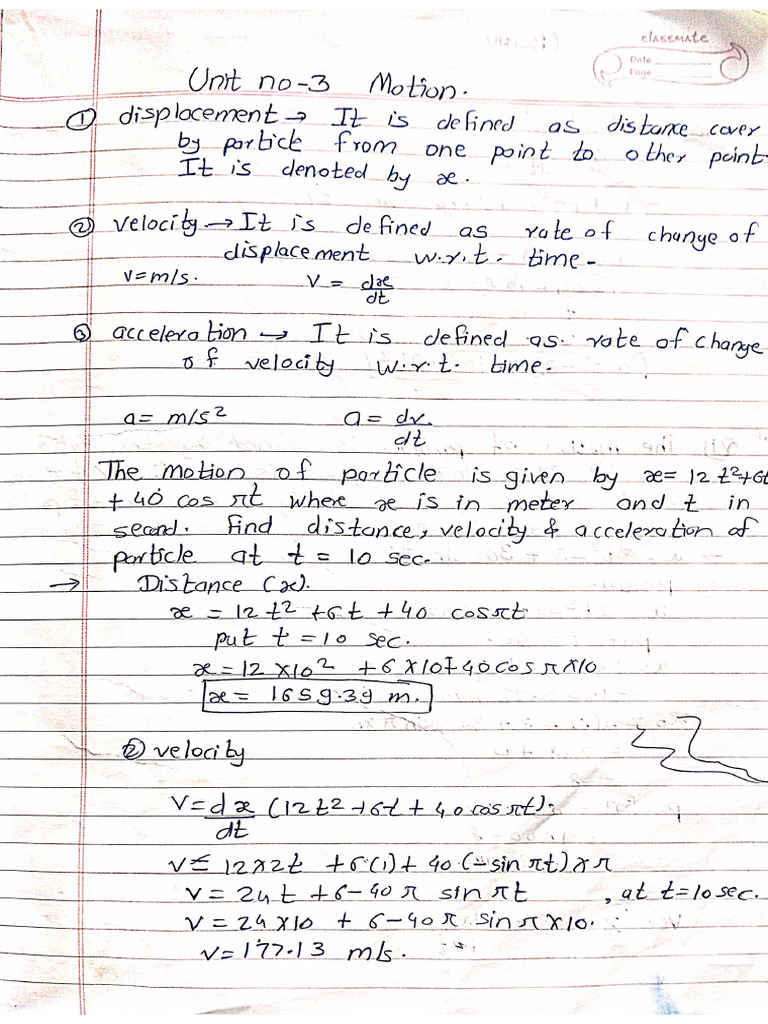 classmate
Date
Page
Unit no-3 Motion.
① displacement → It is defined as distance cover
by particle from one point to other point.
It is denoted by x.
② velocity → It is defined as rate of change of
displacement w.r.t. time-
v=m/s. v = dx/dt
③ acceleration → It is defined as rate of change
of velocity w.r.t. time.
a= m/s² a = dv/dt
The motion of particle is given by x= 12t²+6t
+ 40 cos πt where x is in meter and t in
second. Find distance, velocity & acceleration of
particle at t = 10 sec.
→ Distance (x).
x = 12t² + 6t + 40 cosπt
put t = 10 sec.
x = 12 ×10² + 6 ×10+40 cos π×10
x= 1659.39 m.
② velocity
V = dx/dt (12t² +6t + 40 cos πt).
v = 12×2t + 6(1) + 40 (-sin πt) × π
v = 24t + 6 - 40 π sin πt , at t=10 sec.
v = 24×10 + 6-40π sin π×10.
v= 177.13 m/s.